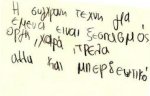 Η σύγχρονη τέχνη για
εμένα είναι ξεσπασμός
οργή, χαρά, τρέλα
αλλά και μπερδευτικό